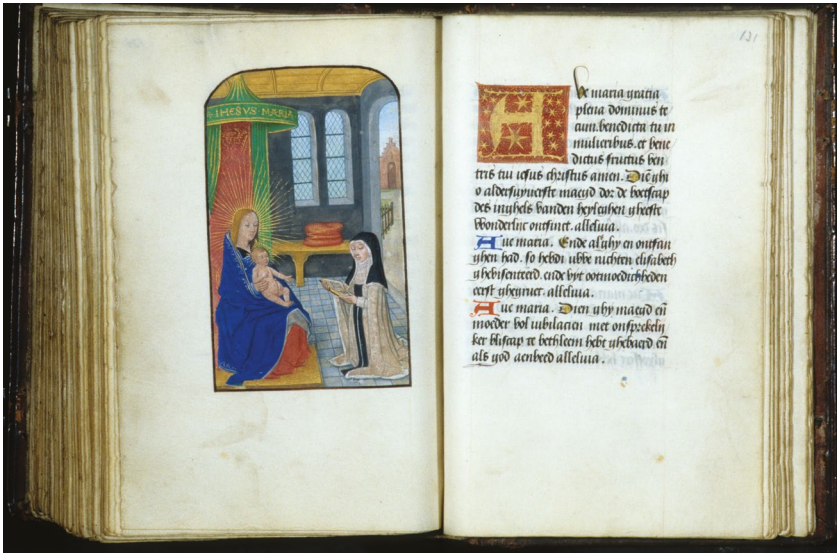 IHESVS · MARIA
131
Aue maria gratia
plena dominus te
cum. benedicta tu in
mulieribus. et bene
dictus fructus ven
tris tui iesus christus amen. Diē ghi
o alder suyuerste maeyd dor de boetscap
des inghels vanden heyleghen gheeste
wonderlic onfinct. alleluia.
Aue maria. Ende als ghy en ontfan
ghen had. so hebdi uwe nichten elisabeth
ghevisenteerd. ende vyt ootmoedichheden
eerst ghegruet. alleluia.
Aue maria. Dien ghy maeyd eñ
moeder vol iubilacien met onsprekelij
ker bliscap te bethleem hebt ghebaerd eñ
als god aenbeed alleluia.